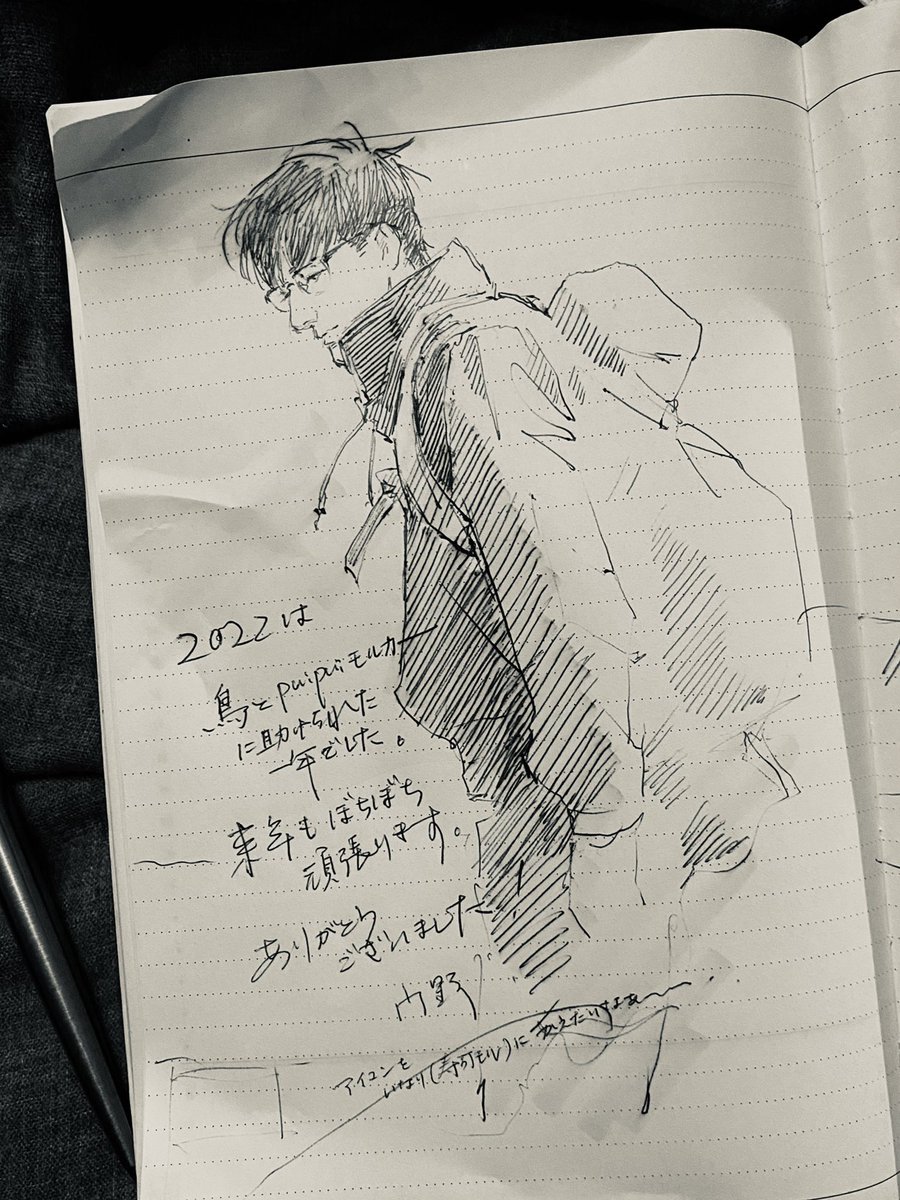 2022は
鳥とpuipuiモルカー
に助けられた
一年でした。
来年もぼちぼち
頑張ります。
ありがとう
ございました
内野
アイコンを
いなり(寿司モル)に変えたいなぁ〜〜.